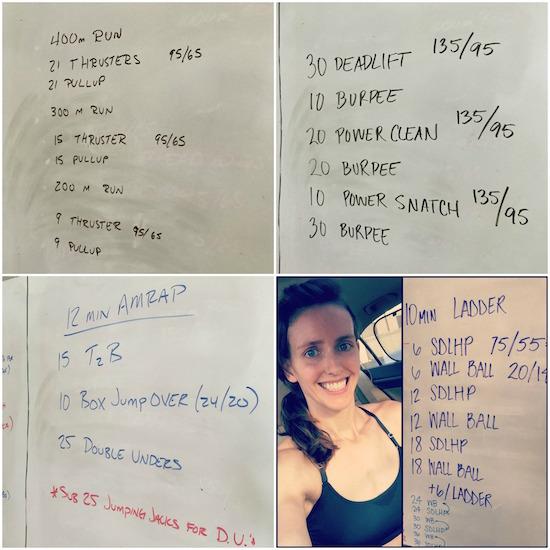 400m RUN
21 THRUSTERS 95/65
21 PULLUP
300 M RUN
15 THRUSTER 95/65
15 PULLUP
200 M RUN
9 THRUSTER 95/65
9 PULLUP
30 DEADLIFT 135/95
10 BURPEE
20 POWER CLEAN 135/95
20 BURPEE
10 POWER SNATCH 135/95
30 BURPEE
12 MIN AMRAP
15 T2B
10 BOX JUMP OVER (24/20)
25 DOUBLE UNDERS
*SUB 25 JUMPING JACKS FOR D.U.'s
10 MIN LADDER
6 SDLHP 75/55
6 WALL BALL 20/14
12 SDLHP
12 WALL BALL
18 SDLHP
18 WALL BALL
+6/LADDER
24 WB
24 SDLHP
30 WB
30 SDLHP
36 WB